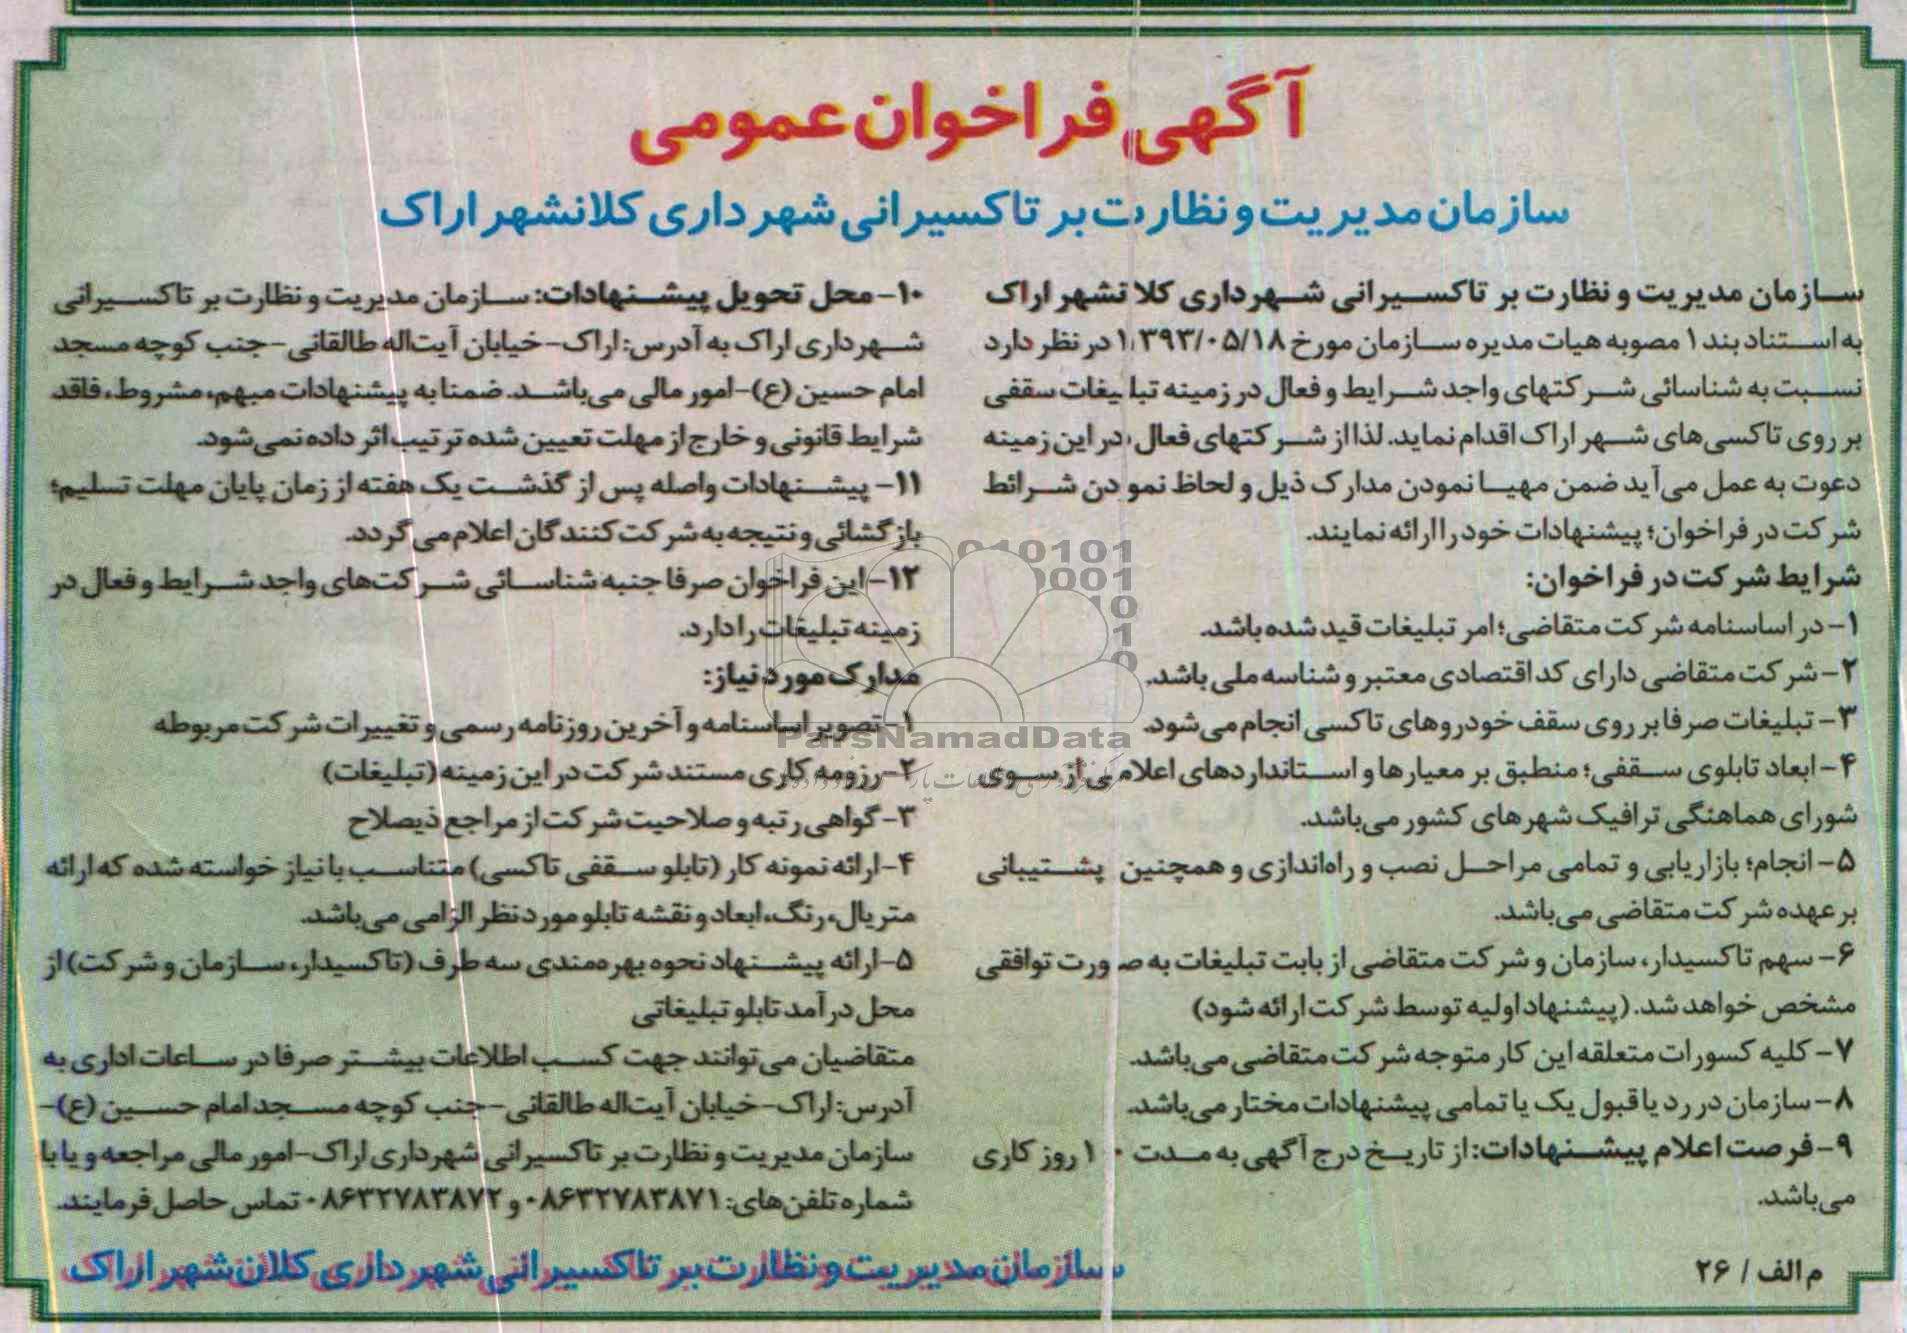 آگهی فراخوان عمومی
سازمان مدیریت و نظارت بر تاکسیرانی شهرداری کلانشهر اراک
سازمان مدیریت و نظارت بر تاکسیرانی شهرداری کلانشهر اراک
به استناد بند ۱ مصوبه هیات مدیره سازمان مورخ ۱۳۹۳/۰۵/۱۸ در نظر دارد
نسبت به شناسائی شرکتهای واجد شرایط و فعال در زمینه تبلیغات سقفی
بر روی تاکسی‌های شهر اراک اقدام نماید. لذا از شرکتهای فعال در این زمینه
دعوت به عمل می‌آید ضمن مهیا نمودن مدارک ذیل و لحاظ نمودن شرائط
شرکت در فراخوان؛ پیشنهادات خود را ارائه نمایند.
شرایط شرکت در فراخوان:
۱- در اساسنامه شرکت متقاضی؛ امر تبلیغات قید شده باشد.
۲- شرکت متقاضی دارای کد اقتصادی معتبر و شناسه ملی باشد.
۳- تبلیغات صرفا بر روی سقف خودروهای تاکسی انجام می‌شود.
۴- ابعاد تابلوی سقفی؛ منطبق بر معیارها و استانداردهای اعلامی از سوی
شورای هماهنگی ترافیک شهرهای کشور می‌باشد.
۵- انجام؛ بازاریابی و تمامی مراحل نصب و راه‌اندازی و همچنین پشتیبانی
بر عهده شرکت متقاضی می‌باشد.
۶- سهم تاکسیدار، سازمان و شرکت متقاضی از بابت تبلیغات به صورت توافقی
مشخص خواهد شد. (پیشنهاد اولیه توسط شرکت ارائه شود)
۷- کلیه کسورات متعلقه این کار متوجه شرکت متقاضی می‌باشد.
۸- سازمان در رد یا قبول یک یا تمامی پیشنهادات مختار می‌باشد.
۹- فرصت اعلام پیشنهادات: از تاریخ درج آگهی به مدت ۱۰ روز کاری
می‌باشد.
۱۰- محل تحویل پیشنهادات: سازمان مدیریت و نظارت بر تاکسیرانی
شهرداری اراک به آدرس: اراک- خیابان آیت‌اله طالقانی- جنب کوچه مسجد
امام حسین (ع)- امور مالی می‌باشد. ضمنا به پیشنهادات مبهم، مشروط، فاقد
شرایط قانونی و خارج از مهلت تعیین شده ترتیب اثر داده نمی‌شود.
۱۱- پیشنهادات واصله پس از گذشت یک هفته از زمان پایان مهلت تسلیم؛
بازگشائی و نتیجه به شرکت کنندگان اعلام می‌گردد.
۱۲- این فراخوان صرفا جنبه شناسائی شرکت‌های واجد شرایط و فعال در
زمینه تبلیغات را دارد.
مدارک مورد نیاز:
۱- تصویر اساسنامه و آخرین روزنامه رسمی و تغییرات شرکت مربوطه
۲- رزومه کاری مستند شرکت در این زمینه (تبلیغات)
۳- گواهی رتبه و صلاحیت شرکت از مراجع ذیصلاح
۴- ارائه نمونه کار (تابلو سقفی تاکسی) متناسب با نیاز خواسته شده که ارائه
متریال، رنگ، ابعاد و نقشه تابلو مورد نظر الزامی می‌باشد.
۵- ارائه پیشنهاد نحوه بهره‌مندی سه طرف (تاکسیدار، سازمان و شرکت) از
محل درآمد تابلو تبلیغاتی
متقاضیان می‌توانند جهت کسب اطلاعات بیشتر صرفا در ساعات اداری به
آدرس: اراک- خیابان آیت‌اله طالقانی- جنب کوچه مسجد امام حسین (ع)-
سازمان مدیریت و نظارت بر تاکسیرانی شهرداری اراک- امور مالی مراجعه و یا با
شماره تلفن‌های: ۰۸۶۳۲۷۸۳۸۷۱ و ۰۸۶۳۲۷۸۳۸۷۲ تماس حاصل فرمایند.
م الف / ۲۶
سازمان مدیریت و نظارت بر تاکسیرانی شهرداری کلان شهر اراک
ParsNamadData